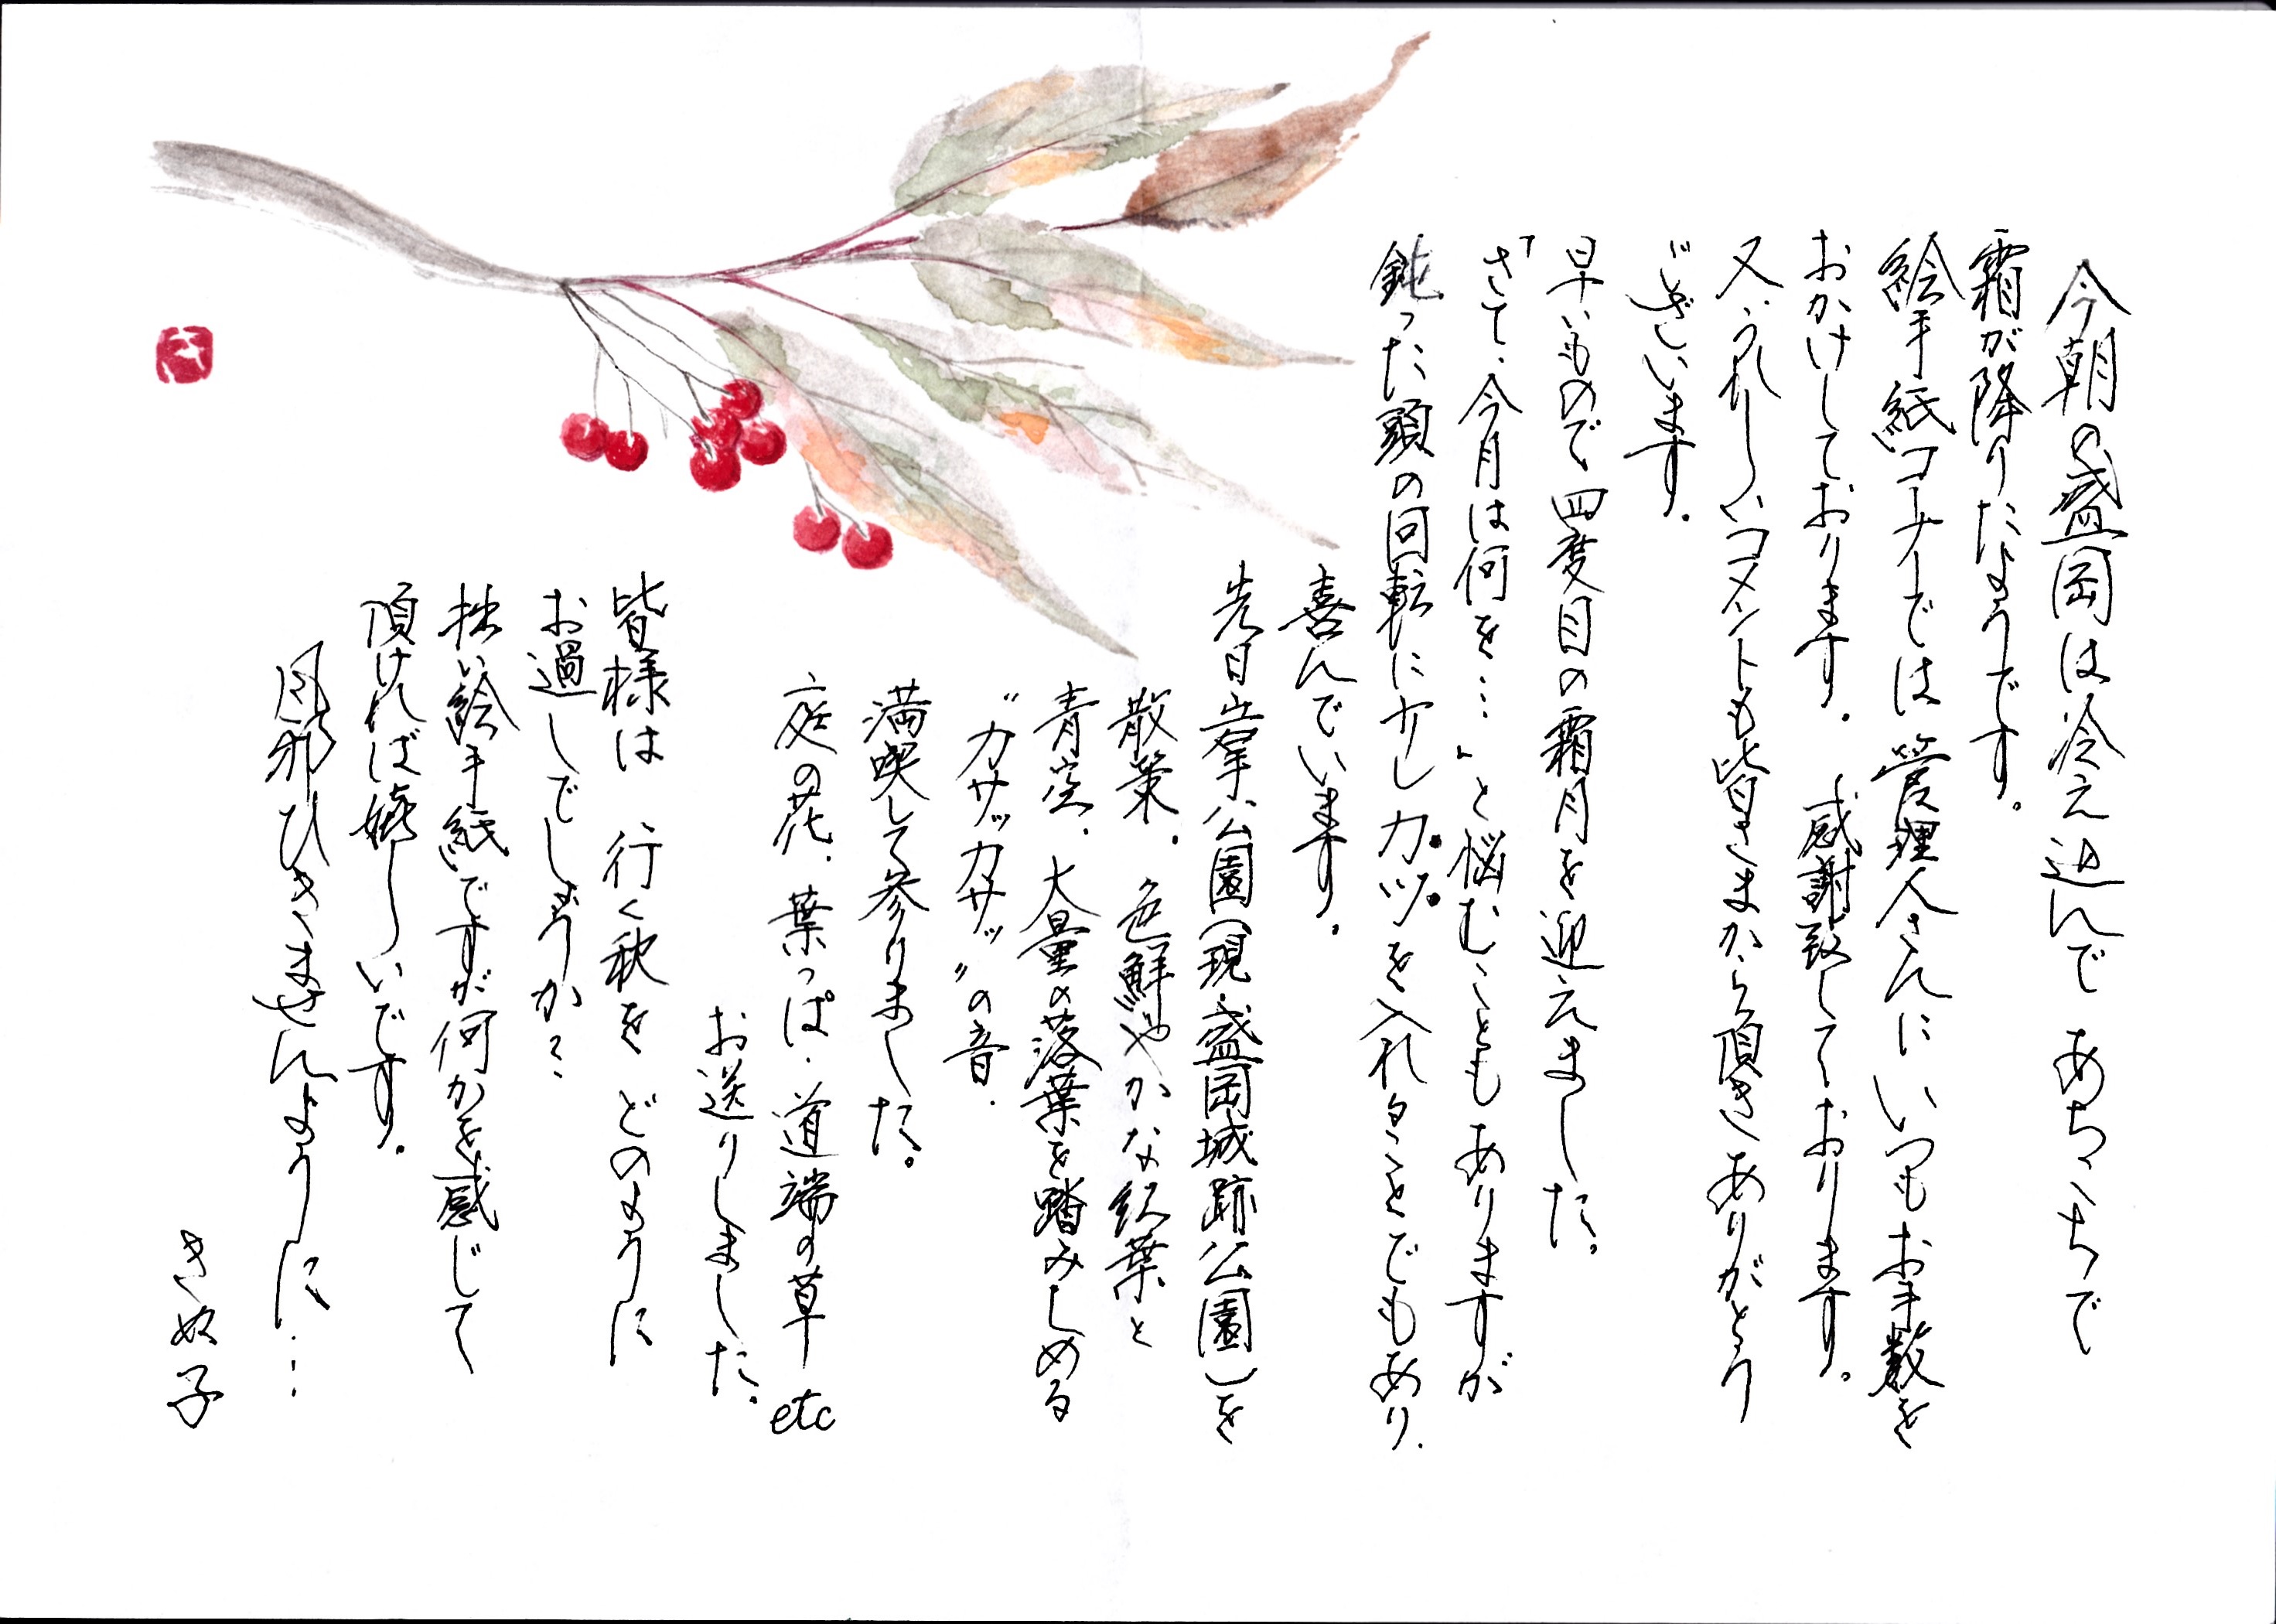 今朝の盛岡は冷え込んで あちこちで
霜が降りたようです。
絵手紙コーナーでは 管理人さんに いつも お手数を
おかけしております。 感謝致しております。
又、うれしいコメントも皆さまから頂き ありがとう
ございます。
早いもので 四度目の霜月を迎えました。
「さて、今月は何を…」と悩むことも ありますが
鈍った頭の回転に少し カツを入れることでもあり、
喜んでいます。
先日岩手公園(現・盛岡城跡公園)を
散策。 色鮮やかな紅葉と
青空、大量の落葉を踏みしめる
“カサッカサッ”の音、
満喫して参りました。
庭の花、葉っぱ、道端の草 etc
お送りしました。
皆様は 行く秋を どのように
お過しでしょうか?
拙い絵手紙ですが何かを感じて
頂ければ嬉しいです。
風邪ひきませんように…
きぬ子